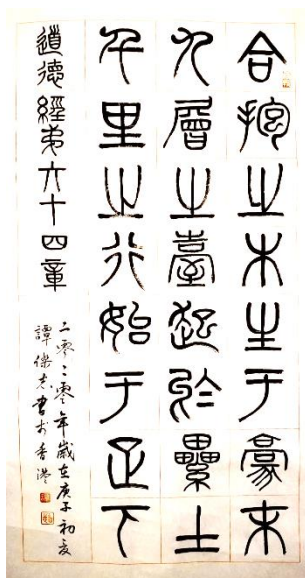 合抱之木生于豪末
九層之臺起於纍土
千里之行始于足下
道德經弟六十四章
二零二零年歲在庚子初夏
譚傑志書於香港